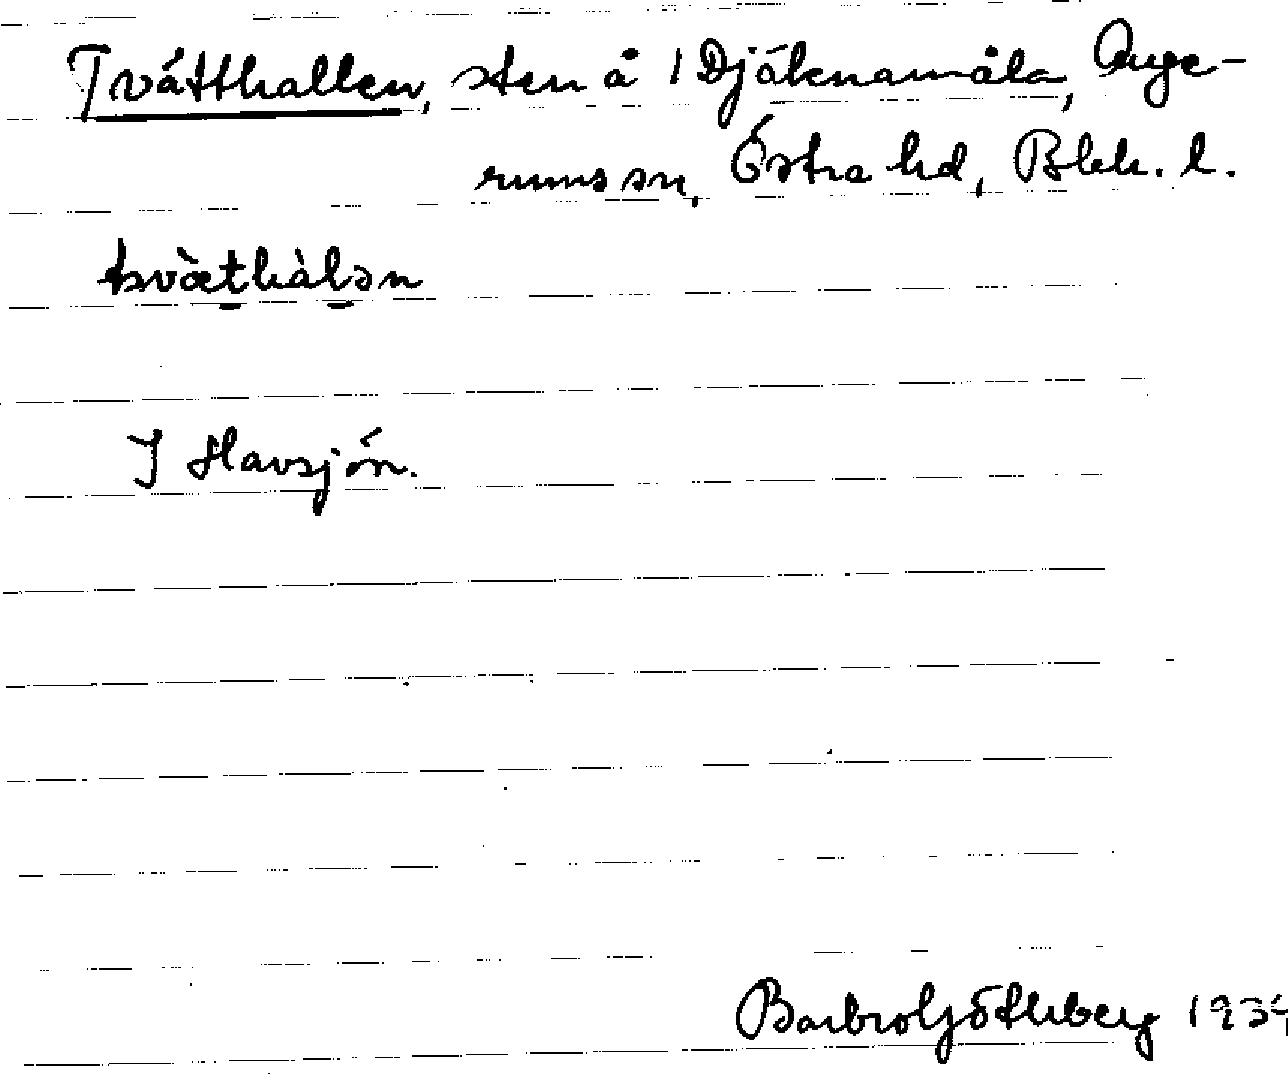 Tvätthallen, sten å 1 Djäknamåla, Auge-
rums sn, Östra hd, Blek. l.
tvæ̀thàlən
I Havsjön.
Barbro Götheberg